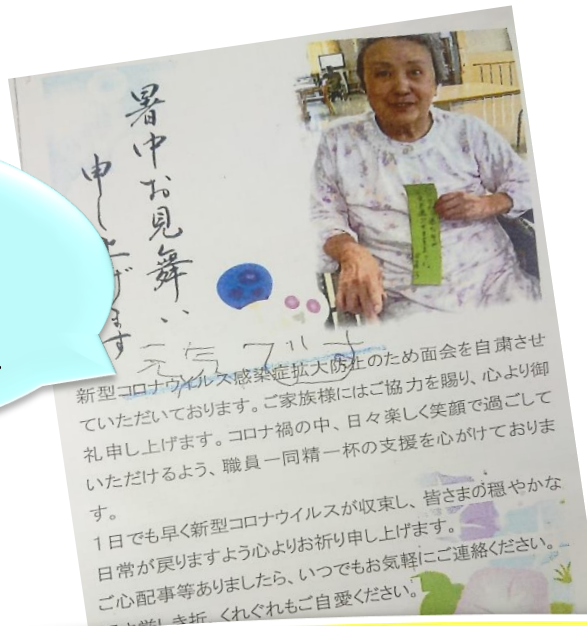 暑中お見舞い
申し上げます
元気です
新型コロナウイルス感染症拡大防止のため面会を自粛させ
ていただいております。ご家族様にはご協力を賜り、心より御
礼申し上げます。コロナ禍の中、日々楽しく笑顔で過ごして
いただけるよう、職員一同精一杯の支援を心がけておりま
す。
1日でも早く新型コロナウイルスが収束し、皆さまの穏やかな
日常が戻りますよう心よりお祈り申し上げます。
ご心配事等ありましたら、いつでもお気軽にご連絡ください。
厳しき折、くれぐれもご自愛ください。